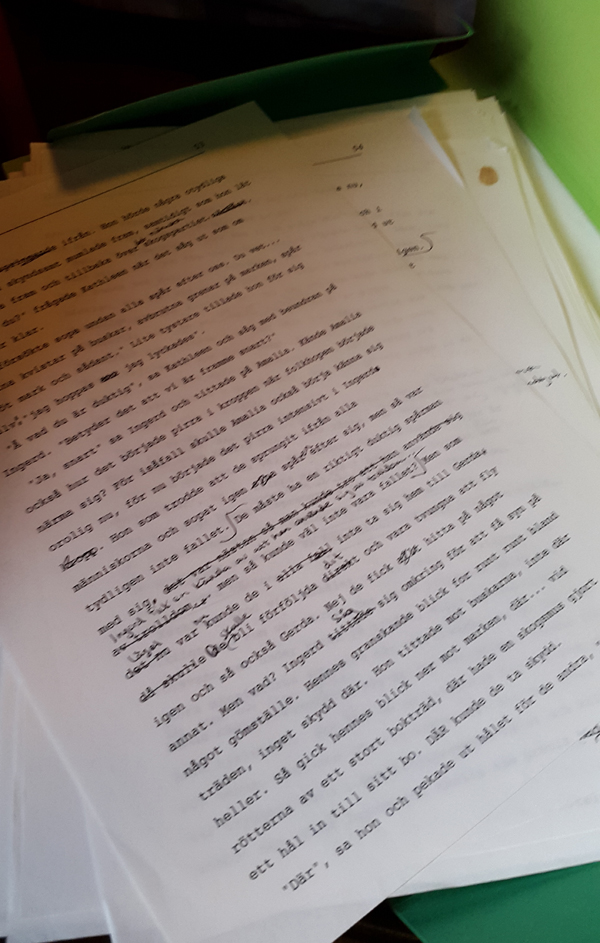 53
54
ifrån. Hon hörde några otydliga
skyndsamt mumlade fram, samtidigt som hon lät
fram och tillbaka över skogspartiet
du?" frågade Kathleen när det såg ut som om
klar.
försökte sopa undan alla spår efter oss. Du vet...
kvistar på buskar, avbrutna grenar på marken, spår
mark och sådant." Lite tystare tillade hon för sig
"jag hoppas jag lyckades".
-Å vad du är duktig", sa Kathleen och såg med beundran på
Ingerd. "Betyder det att vi är framme snart?"
-Ja, snart" sa Ingerd och tittade på Amalia. Kände Amalia
också hur det började pirra i kroppen när folkhopen började
närma sig? För isåfall skulle Amalia också börja känna sig
orolig nu, för nu började det pirra intensivt i Ingerds
kropp. Hon som trodde att de sprungit ifrån alla
människorna och sopat igen spår efter sig, men så var
tydligen inte fallet. De måste ha en riktigt duktig spårman
med sig, det var nästan så man kunde tro att han använde sig
av trolldom, men så kunde väl inte vara fallet? Men som
det nu var kunde de i alla fall inte ta sig hem till Gerda,
då skulle de bli förföljda direkt och vara tvungna att fly
igen och så också Gerda. Nej de fick hitta på något
annat. Men vad? Ingerd tittade sig omkring för att få syn på
något gömställe. Hennes granskande blick for runt runt bland
träden, inget skydd där. Hon tittade mot buskarna, inte där
heller. Så gick hennes blick ner mot marken, där... vid
rötterna av ett stort bokträd, där hade en skogsmus gjort
ett hål in till sitt bo. DÄR kunde de ta skydd.
"Där", sa hon och pekade ut hålet för de andra,